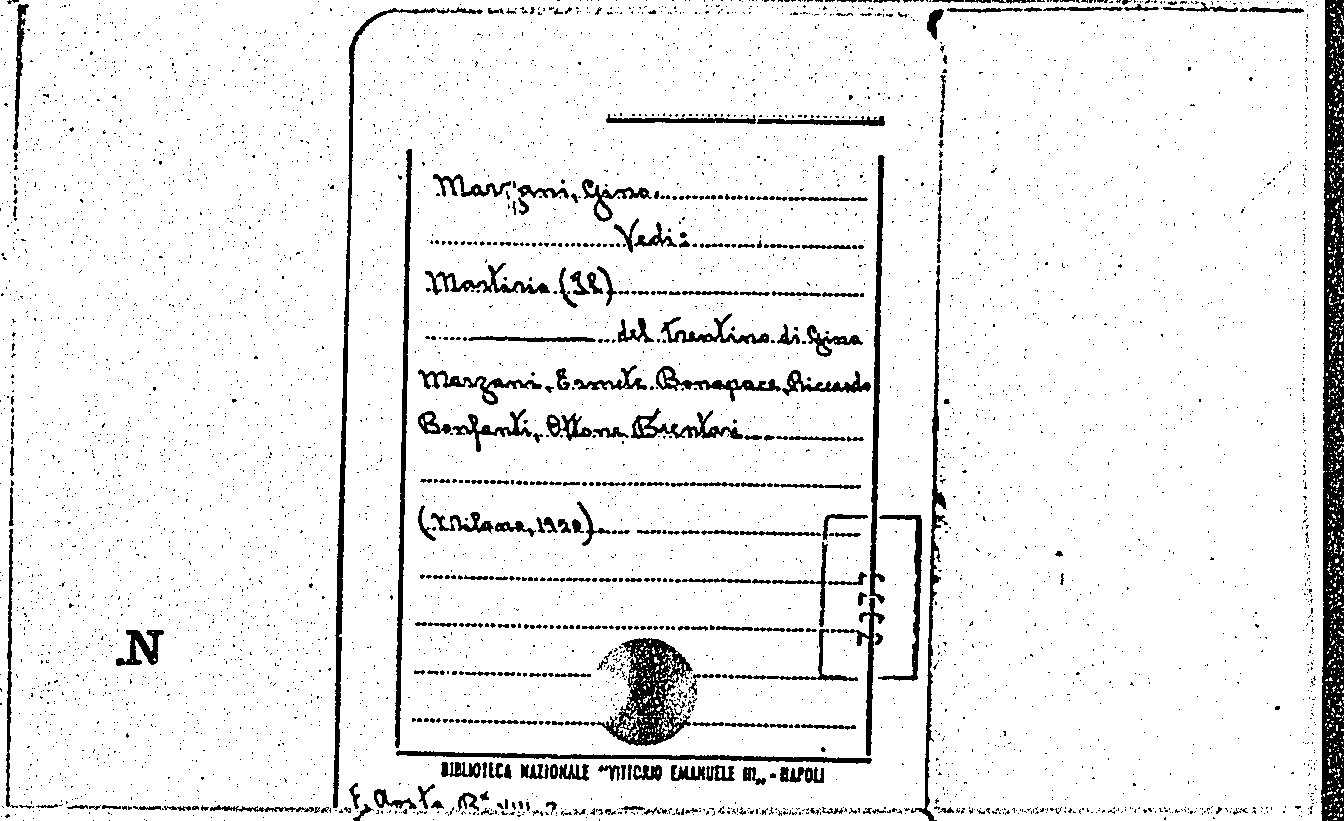 Marzani, Gino.
Vedi:
Martirio (Il)
del Trentino di Gino
Marzani, Ermete Bonapace, Riccardo
Bonfanti, Ottone Brentari
(Milano, 1920).
.N
BIBLIOTECA NAZIONALE "VITTORIO EMANUELE III„ - NAPOLI